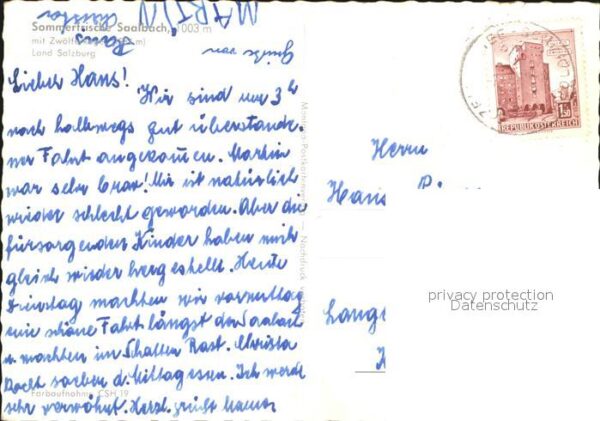 MARTIN
Hans
Grüße von
Sommerfrische Saalbach, 1003 m
mit
Land Salzburg
Lieber Hans!
Wir sind um 3 h
nach halbwegs gut überstande-
ner Fahrt angekommen. Martin
war sehr brav! Mir ist natürlich
wieder schlecht geworden. Aber die
fürsorgenden Kinder haben mich
gleich wieder hergestellt. Heute
Dienstag machten wir vormittag
eine schöne Fahrt längst der Saalach
u. machten im Schatten Rast. Christa
kocht soeben d. Mittagessen. Ich werde
sehr verwöhnt. Herzl. grüßt Mama
Farbaufnahme CSH 19
Nachdruck
REPUBLIK ÖSTERREICH
1.50
Herrn
Hans
Lang
privacy protection
Datenschutz